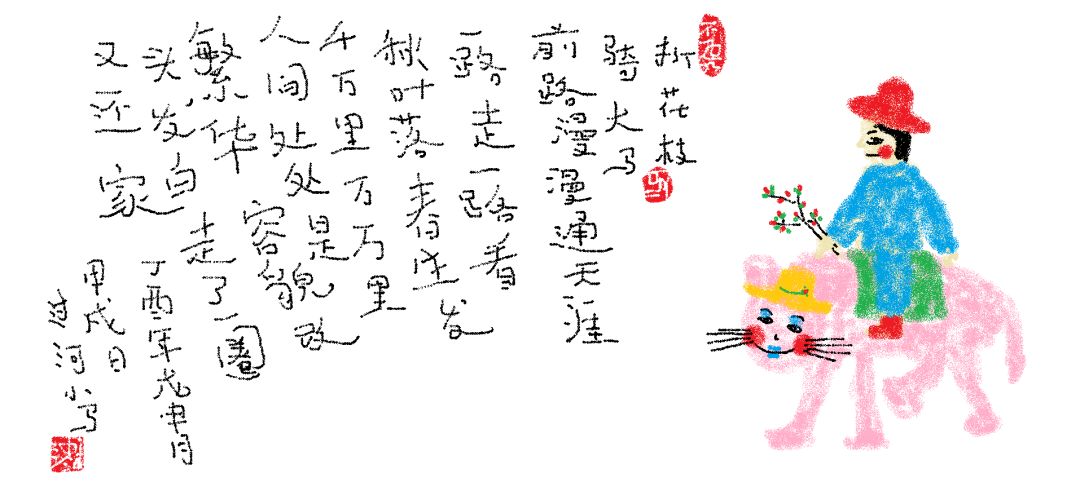 折花枝
骑大马
前路漫漫通天涯
一路走一路看
秋叶落春生发
千万里万万里
人间处处是
繁华容貌改
头发白走了一圈
又还家
丁酉年戊申月
甲戌日
河小马